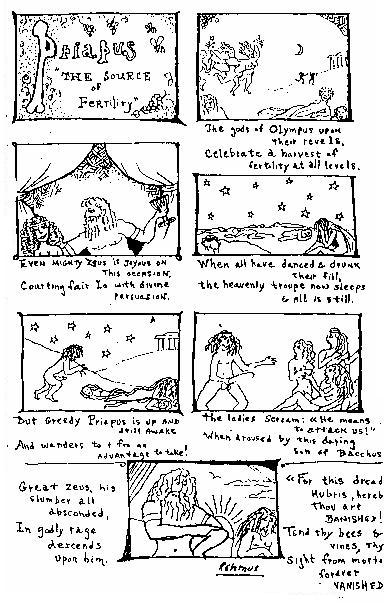 Priapus
"THE SOURCE
OF
FERTILITY"
The gods of Olympus upon
their revels,
Celebrate a harvest of
fertility at all levels.
EVEN MIGHTY ZEUS IS JOYOUS ON
THIS OCCASION,
Courting fair Io with divine
persuasion.
When all have danced & drunk
their fill,
the heavenly troupe now sleeps
& all is still.
But Greedy Priapus is up AND
still AWAKE
And wanders to & fro an
ADVANTAGE to take!
the ladies scream: "He means
to attack us!"
When aroused by this daring
son of Bacchus
Great Zeus, his
slumber all
absconded,
In godly rage
descends
upon him.
"For this dread
Hubris, hereby
thou art
BANISHED!
Tend thy bees &
vines, thy
Sight from mortals
forever
VANISHED